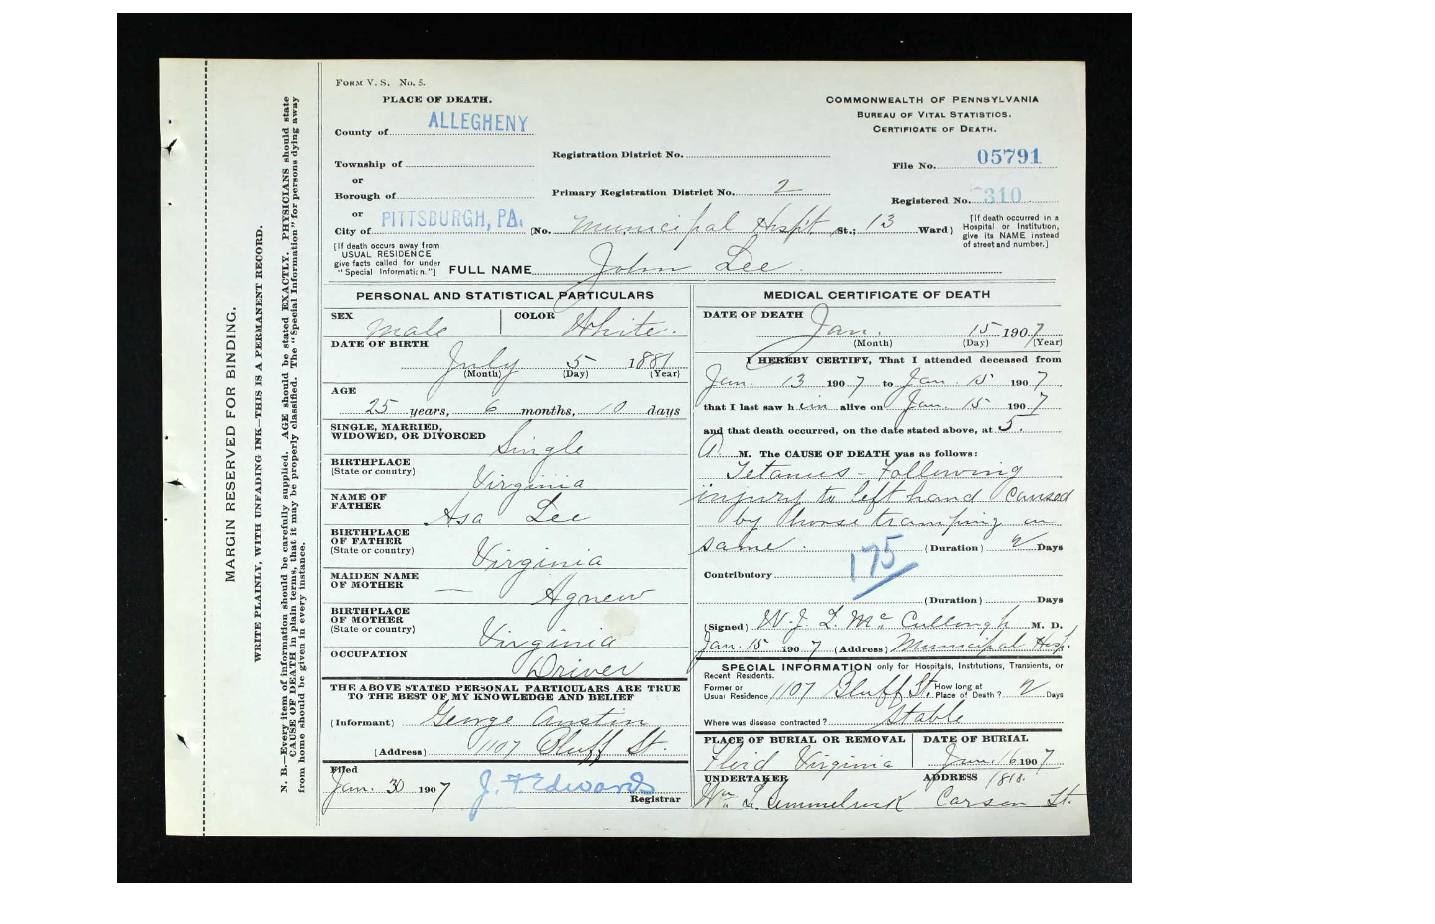 MARGIN RESERVED FOR BINDING.
WRITE PLAINLY, WITH UNFADING INK—THIS IS A PERMANENT RECORD.
N. B.—Every item of information should be carefully supplied. AGE should be stated EXACTLY. PHYSICIANS should state
CAUSE OF DEATH in plain terms, that it may be properly classified. The "Special Information" for persons dying away
from home should be given in every instance.
FORM V. S. No. 5.
PLACE OF DEATH.
County of ALLEGHENY
Township of
or
Borough of
or
City of PITTSBURGH, PA.
COMMONWEALTH OF PENNSYLVANIA
BUREAU OF VITAL STATISTICS.
CERTIFICATE OF DEATH.
Registration District No.
File No. 05791
Primary Registration District No. 2
Registered No. 310
(No. Municipal Hospt St.; 13 Ward)
[If death occurred in a
Hospital or Institution,
give its NAME instead
of street and number.]
[If death occurs away from
USUAL RESIDENCE
give facts called for under
"Special Information."]
FULL NAME John Lee
PERSONAL AND STATISTICAL PARTICULARS
SEX Male
COLOR White.
DATE OF BIRTH
July 5 1881
(Month) (Day) (Year)
AGE
25 years, 6 months, 10 days
SINGLE, MARRIED,
WIDOWED, OR DIVORCED Single
BIRTHPLACE
(State or country) Virginia
NAME OF
FATHER Asa Lee
BIRTHPLACE
OF FATHER
(State or country) Virginia
MAIDEN NAME
OF MOTHER — Agnew
BIRTHPLACE
OF MOTHER
(State or country) Virginia
OCCUPATION Driver
THE ABOVE STATED PERSONAL PARTICULARS ARE TRUE
TO THE BEST OF MY KNOWLEDGE AND BELIEF
(Informant) George Austin
(Address) 1107 Bluff St.
Filed
Jan. 30 1907 J. F. Edwards
Registrar
MEDICAL CERTIFICATE OF DEATH
DATE OF DEATH Jan. 15 1907
(Month) (Day) (Year)
I HEREBY CERTIFY, That I attended deceased from
Jan 13 1907 to Jan. 15 1907
that I last saw him alive on Jan. 15 1907
and that death occurred, on the date stated above, at 5
A M. The CAUSE OF DEATH was as follows:
Tetanus - Following
injury to left hand caused
by horse tramping on
same. (Duration) 2 Days
175
Contributory
(Duration) Days
(Signed) W. J. L. McCullough M. D.
Jan. 15 1907 (Address) Municipal Hosp.
SPECIAL INFORMATION only for Hospitals, Institutions, Transients, or
Recent Residents.
Former or
Usual Residence 1107 Bluff St. How long at
Place of Death? 2 Days
Where was disease contracted? Stable
PLACE OF BURIAL OR REMOVAL
Floid Virginia
DATE OF BURIAL
Jan. 16 1907
UNDERTAKER
Wm L.
ADDRESS 1818.
Carson St.